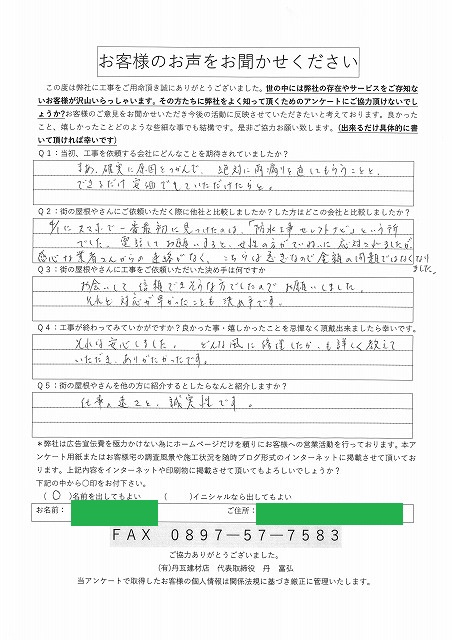 お客様のお声をお聞かせください
この度は弊社に工事をご用命頂き誠にありがとうございました。世の中には弊社の存在やサービスをご存知な
いお客様が沢山いらっしゃいます。その方たちに弊社をよく知って頂くためのアンケートにご協力頂けないでし
ょうか?お客様のご意見をお聞かせいただき今後の活動に反映させていただきたいと考えております。良かった
こと、嬉しかったことどのような些細な事でも結構です。是非ご協力お願い致します。(出来るだけ具体的に書
いて頂ければ幸いです)
Q1:当初、工事を依頼する会社にどんなことを期待されていましたか?
まあ、確実に原因をつかんで、絶対に雨漏りを直してもらうことと、
できるだけ安価でしていただけたらと。
Q2:街の屋根やさんにご依頼いただく際に他社と比較しましたか?した方はどこの会社と比較しましたか?
スマホで一番最初に見つけたのは、「防水工事セレクトナビ」という所
でした。電話してお願いすると、女性の方がていねいに応対されましたが、
肝心な業者さんからの連絡がなく、こちらは急ぎなので金額の問題ではなくなり
ました。
Q3:街の屋根やさんに工事をご依頼いただいた決め手は何ですか
お会いして、信頼できそうな方でしたのでお願いしました。
それと対応が早かったことも決め手です。
Q4:工事が終わってみていかがですか?良かった事・嬉しかったことを忌憚なく頂戴出来ましたら幸いです。
それは安心しました。どんな風に修理したかも詳しく教えて
いただき、ありがたかったです。
Q5:街の屋根やさんを他の方に紹介するとしたらなんと紹介しますか?
仕事の速さと、誠実性です。
*弊社は広告宣伝費を極力かけない為にホームページだけを頼りにお客様への営業活動を行っております。本ア
ンケート用紙またはお客様宅の調査風景や施工状況を随時ブログ形式のインターネットに掲載させて頂いてお
ります。上記内容をインターネットや印刷物に掲載させて頂いてもよろしいでしょうか?
下記の中から〇印をお付下さい。
(〇)名前を出してもよい ( )イニシャルなら出してもよい
お名前: ご住所:
FAX 0897-57-7583
ご協力ありがとうございました。
(有)丹瓦建材店 代表取締役 丹 富弘
当アンケートで取得したお客様の個人情報は関係法規に基づき厳正に管理いたします。